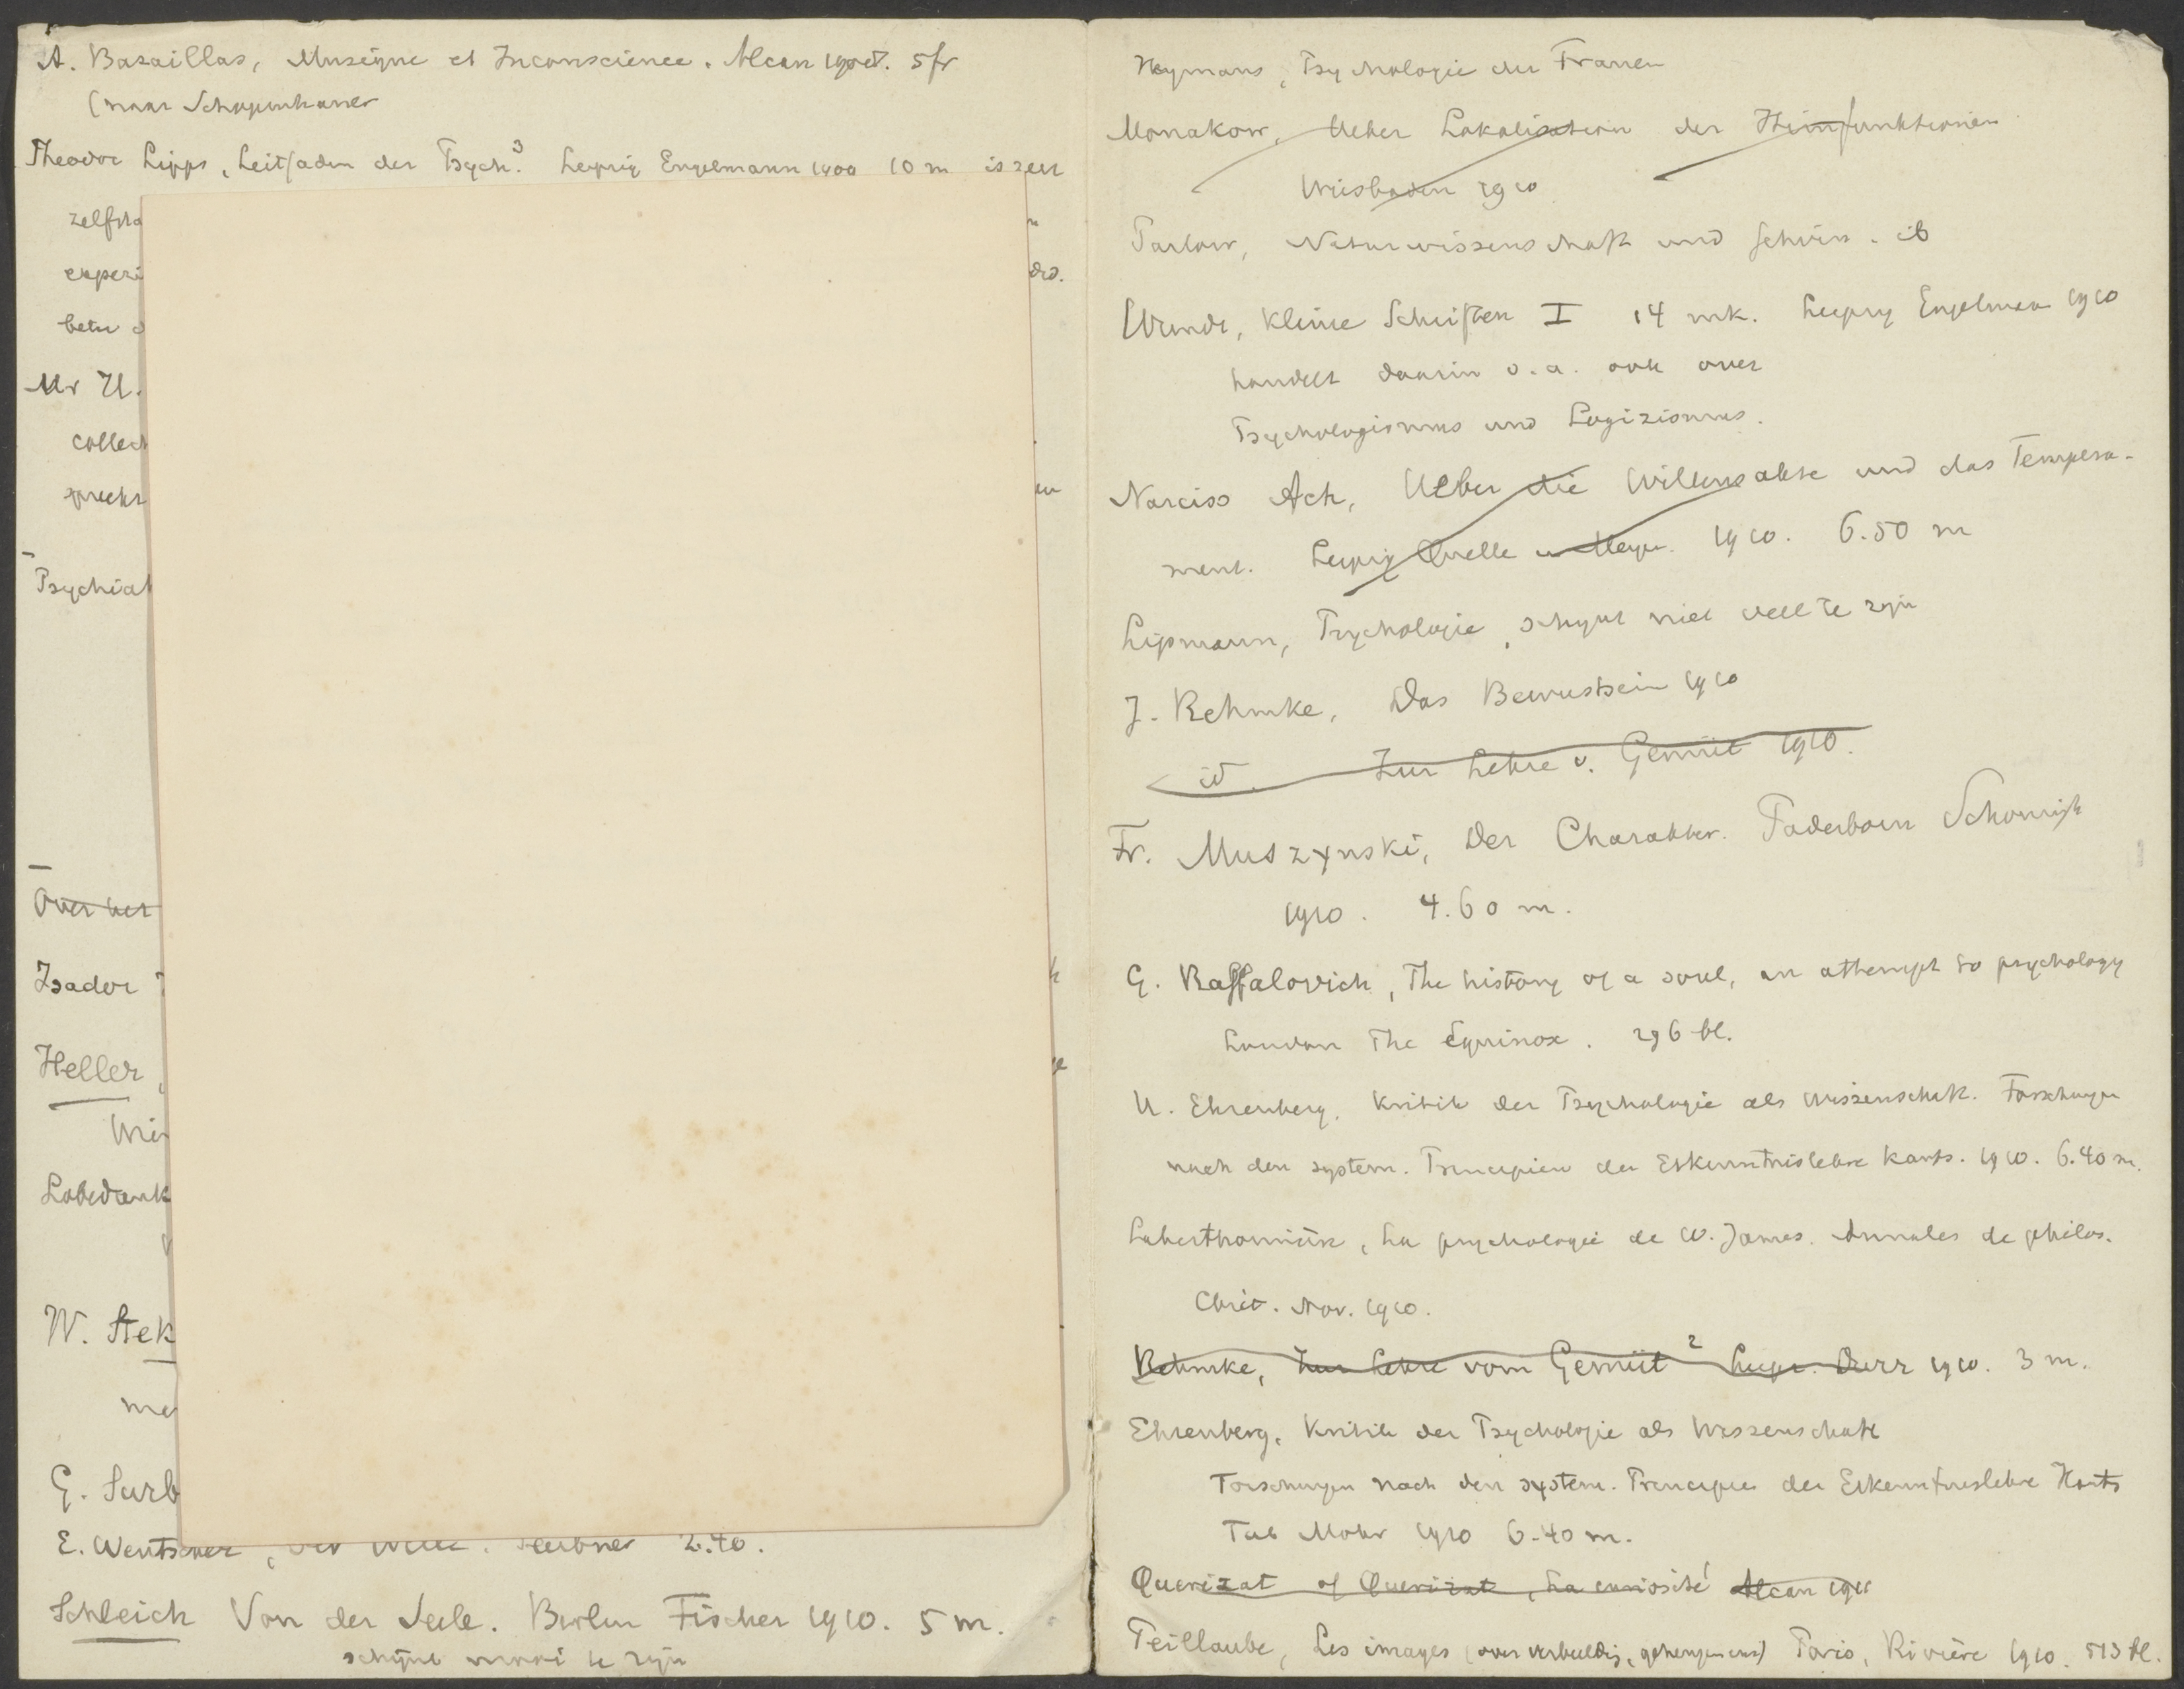 A. Bazaillas, Musique et Inconscience. Alcan 5 fr
(naar Schopenhauer
Theodor Lipps, Leitfaden der Psych.³ Leipzig Engelmann 1909 10 m is zeer
zelfsta
experi
betu
Mr H.
collect
spreekt
Psychiat
Over het
Isador
Heller,
Wie
Lobedank
W. Stek
me
G. Surb
E. Wentscher, Der Wille. Teubner 2.40.
Schleich Von der Seele. Berlin Fischer 1910. 5 m.
schijnt mooi te zijn
Heymans, Psychologie der Frauen
Monakow, Ueber Lokalisation der Hirnfunktionen
Wiesbaden 1910
Naturwissenschaft und ib
Wundt, Kleine Schriften I 14 mk. Leipzig Engelman 1910
handelt daarin o.a. ook over
Psychologismus und Logizismus.
Narciss Ach, Ueber die Willensakte und das Tempera-
ment. Leipzig Quelle u Meyer. 1910. 6.50 m
Lipmann, Psychologie, schijnt niet veel te zijn
J. Rehmke, Das Bewustsein 1910
id. Zur Lehre v. Gemüt 1910.
Fr. Muszynski, Der Charakter. Paderborn Schöningh
1910. 4.60 m.
G. Raffalovich, The history of a soul, an attempt to psychology
London The Equinox. 296 bl.
H. Ehrenberg. Kritik der Psychologie als Wissenschaft. Forschungen
nach den system. Principien der Erkenntnislehre Kants. 1910. 6.40 m.
Laberthonnière, La psychologie de W. James. Annales de philos.
Chrét. Nov. 1910.
Rehmke, Zur Lehre vom Gemüt ² Leipz. Dürr 1910. 3 m.
Ehrenberg, Kritik der Psychologie als Wissenschaft
Forschungen nach den system. Principien der Erkenntnislehre Kants
Tüb Mohr 1910 6.40 m.
Querizat of Queirat, La curiosité Alcan 1911
Peillaube, Les images (over verbeelding, geheugen enz) Paris, Rivière 1910. 513 bl.